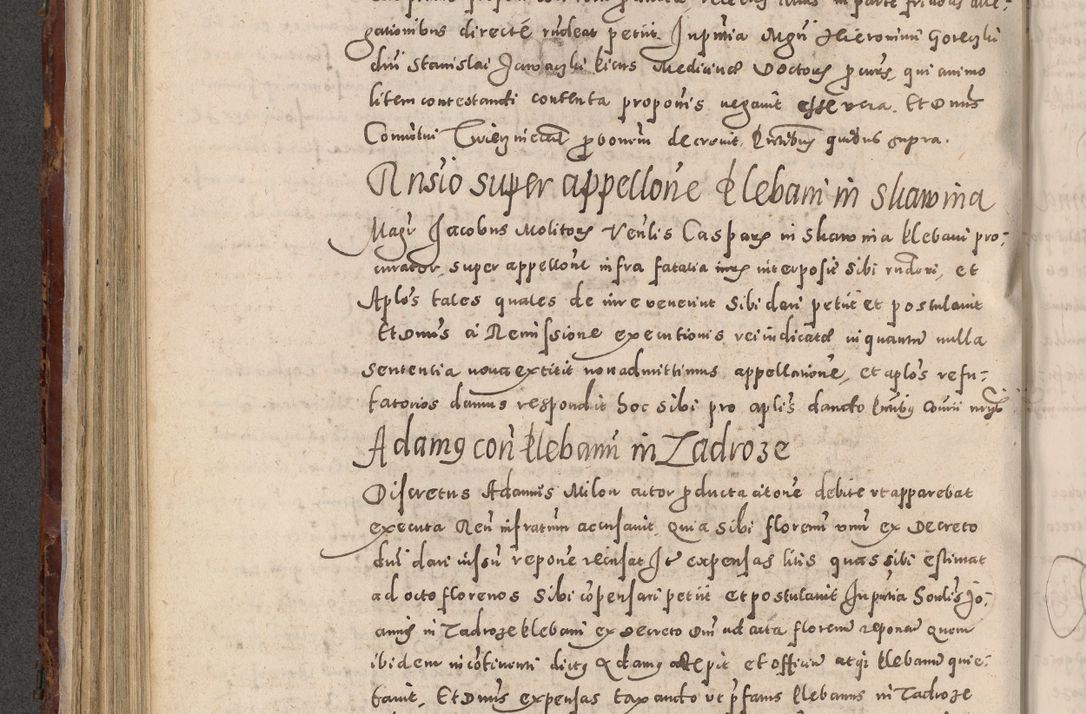 gationibus directe rudeat petiit. In pñtia Mgri Hieronimi Gorczki
dni Stanislai Jarvaczki Licus Medicinae Doctoris procuris, qui animo
litem contestandi contenta proponis negavit esse vera. Et Dnus
Comittui pro bonum decrevit, pñtibus quibus supra.
Rñsio super appellone Plebani in Skawina
Magr Jacobus Molitoris Venlis Caspari in Skawina plebani pro-
curator, super appellone infra fatalia interposit sibi rnderi, et
Aplos tales quales de iure venerint sibi dari petiit et postulavit
Et Dnus a Remissione executionis rei indicatae in quantum nulla
sententia nova extitit non admittimus appellationem, et aplos refu-
tatorios damus respondit hoc sibi pro aplis dando pñtibus
Adamus con plebanum in Zadroze
Discretus Adamus Milon actor producta citatone debite ut apparebat
executa Reum infratum accusavit, quia sibi florenum unum ex Decreto
dni dari iussum repone recusat Ite expensas litis quas sibi estimat
ad octo florenos sibi copensari petiit et postulavit In pñtia Soulis Jo-
annis in Zadroze plebani ex Decreto Dni ad acta florenum reponentem quem
ibidem in cotinenti dictus Adamus accepit et officium atque plebanum quie-
tavit. Et Dnus expensas taxando ut pfatus plebanus in Zadroze